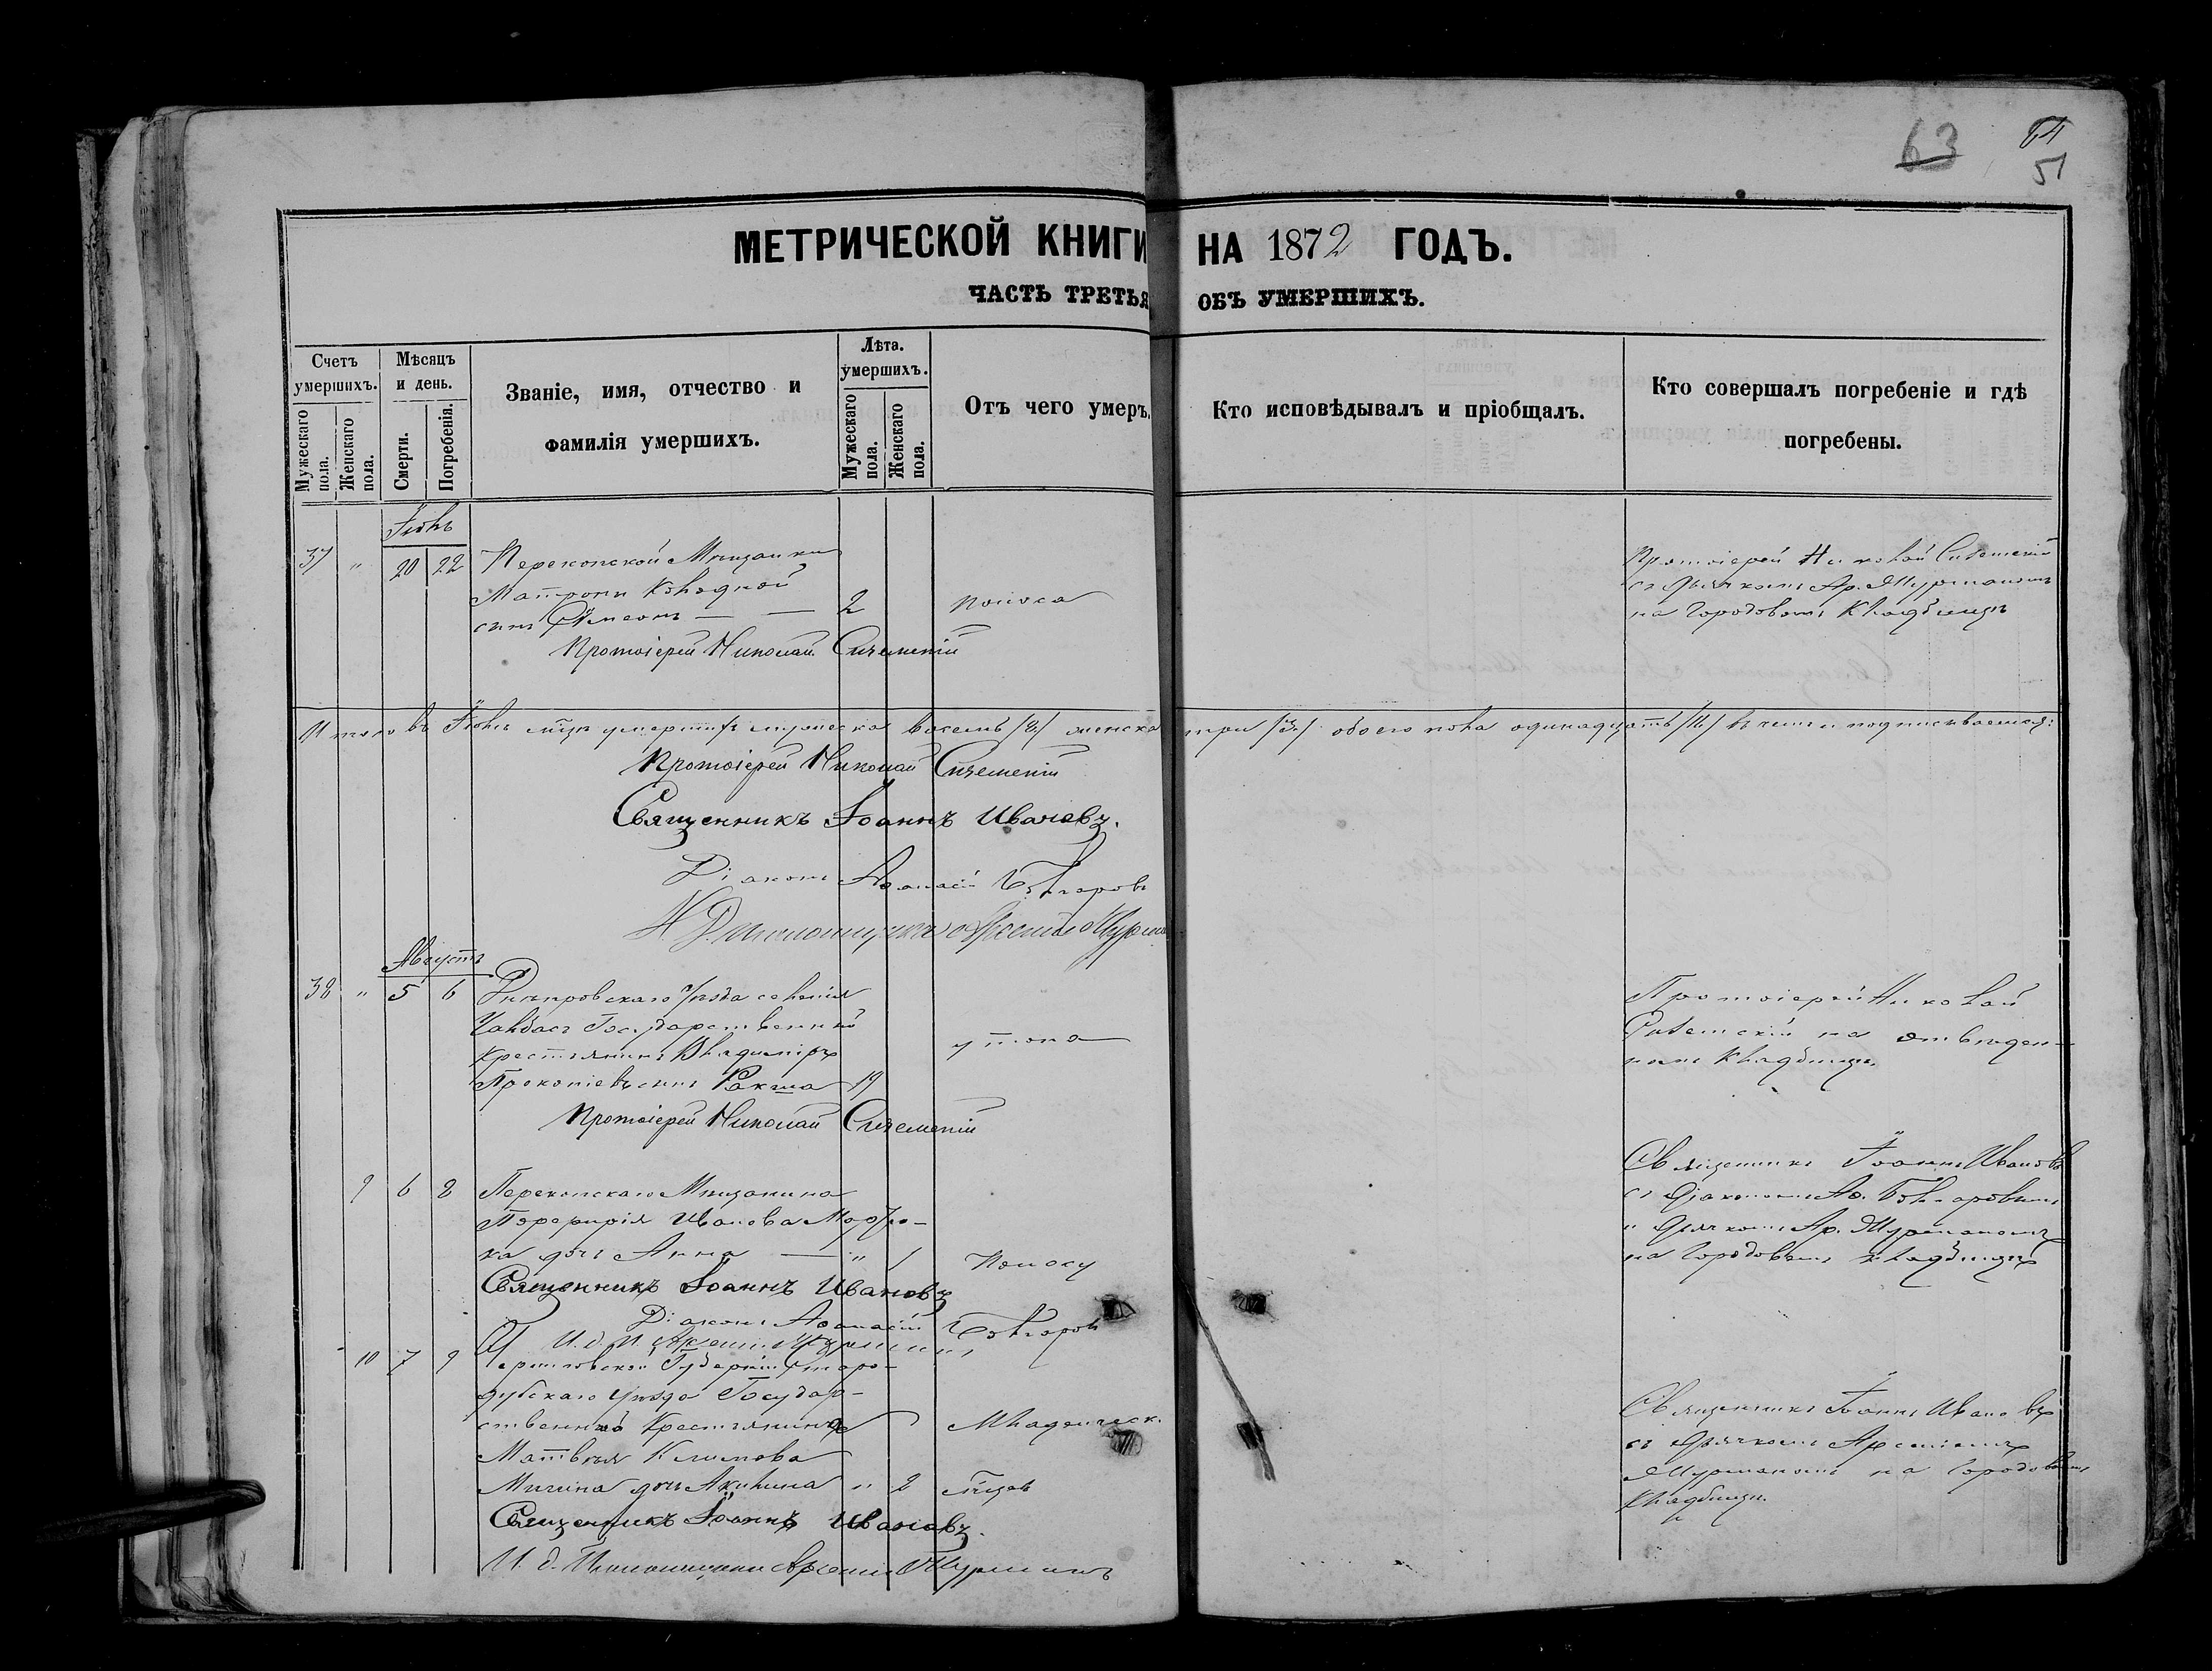 63
64
51
МЕТРИЧЕСКОЙ КНИГИ НА 1872 ГОДЪ.
ЧАСТЬ ТРЕТЬЯ ОБЪ УМЕРШИХЪ.
Счетъ умершихъ.
Мужескаго пола.
Женскаго пола.
Мѣсяцъ и день.
Смерти.
Погребенія.
Званіе, имя, отчество и
фамилія умершихъ.
Лѣта. умершихъ.
Мужескаго пола.
Женскаго пола.
Отъ чего умеръ.
Кто исповѣдывалъ и пріобщалъ.
Кто совершалъ погребеніе и гдѣ
погребены.
37 " 20 22 Перекопской Мѣщанки
Матроны
сынъ Симеонъ — — 2 поноса
Протоіерей Николай
на Городовомъ Кладбищѣ
Протоіерей Николай
Итого въ умершихъ мужеска восемь /8/ женска три /3/ обоего пола одинадцать /11/ въ чемъ и подписываемся:
Протоіерей Николай
Священникъ Іоаннъ Ивановъ.
Діаконъ Аѳанасій Болгаровъ
Августъ
38 " 5 6 Днѣпровскаго Уѣзда селенія
Чалбасъ Государственный
крестьянинъ Владиміръ
Прокопіевъ сынъ Ракша 19
утопа
Протоіерей Николай
на отведен-
номъ кладбищѣ
Протоіерей Николай
9 6 8 Перекопскаго Мѣщанина
Порфирія Иванова
ка дочь Анна — " 1 Поносу
Священникъ Іоаннъ Ивановъ
съ Діакономъ Аѳ. Болгаровымъ
и Дьячкомъ Ар.
на Городовомъ кладбищѣ
Священникъ Іоаннъ Ивановъ
Діаконъ Аѳанасій Болгаровъ
10 7 9 Черниговской Губерніи Старо-
дубскаго Уѣзда Государ-
ственнаго Крестьянина
Матвѣя Климова
дочь Акилина " 2
Младенческ.
Священникъ Іоаннъ Ивановъ
съ Дьячкомъ Арсеніемъ
на Городовомъ
кладбищѣ.
Священникъ Іоаннъ Ивановъ.
И. д. Арсеній